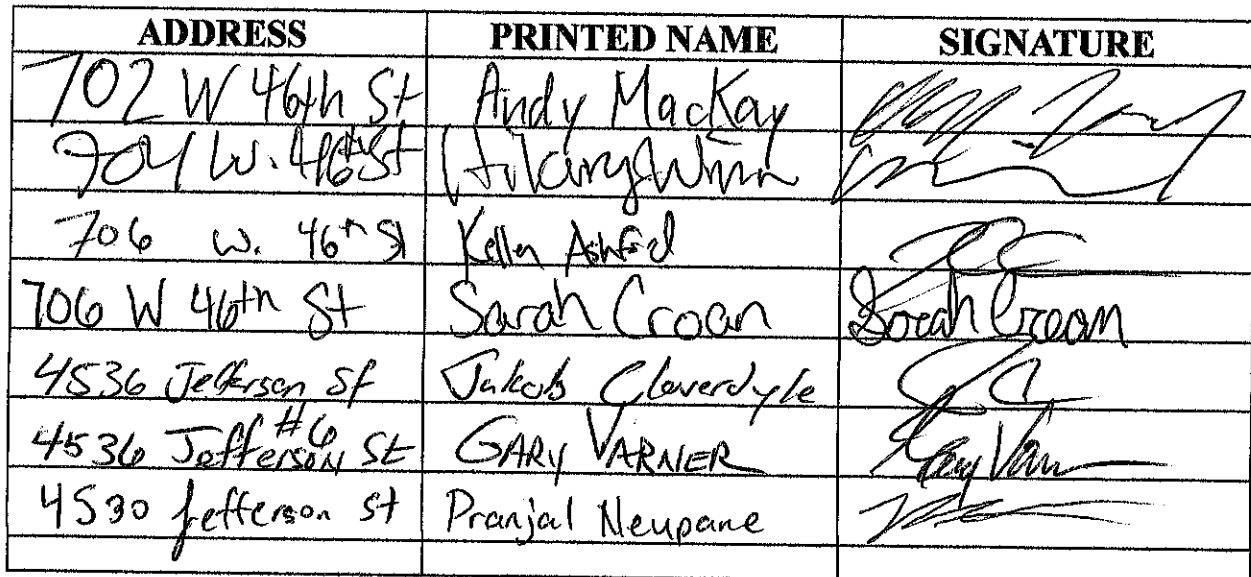 ADDRESS PRINTED NAME SIGNATURE
702 W 46th St Andy MacKay
704 W. 46th St Hilary Winn
706 W. 46th St Kellen Ashford
706 W 46th St Sarah Croan Sarah Croan
4536 Jefferson St Jakob Cloverdyle
4536 Jefferson #6 St GARY VARNER Gary Varner
4530 Jefferson St Pranjal Neupane